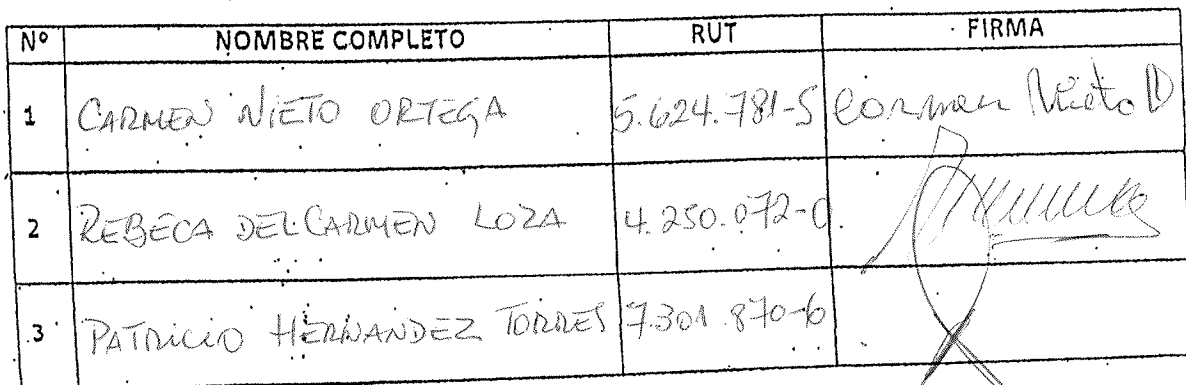 Nº NOMBRE COMPLETO RUT FIRMA
1 CARMEN NIETO ORTEGA 5.624.781-5 Carmen Nieto O
2 REBECA DEL CARMEN LOZA 4.250.072-0
3 PATRICIO HERNANDEZ TORRES 7.301.870-6